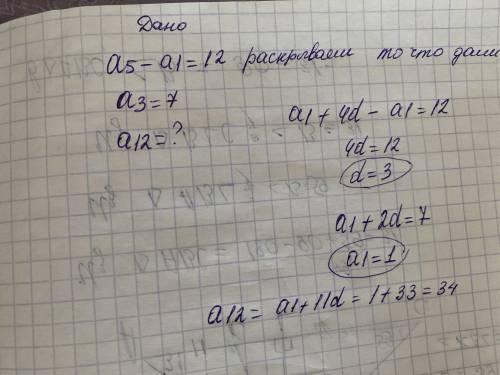 Дано
a5 - a1 = 12 раскрываем то что дали
a3 = 7
a12 = ?
a1 + 4d - a1 = 12
4d = 12
d = 3
a1 + 2d = 7
a1 = 1
a12 = a1 + 11d = 1 + 33 = 34